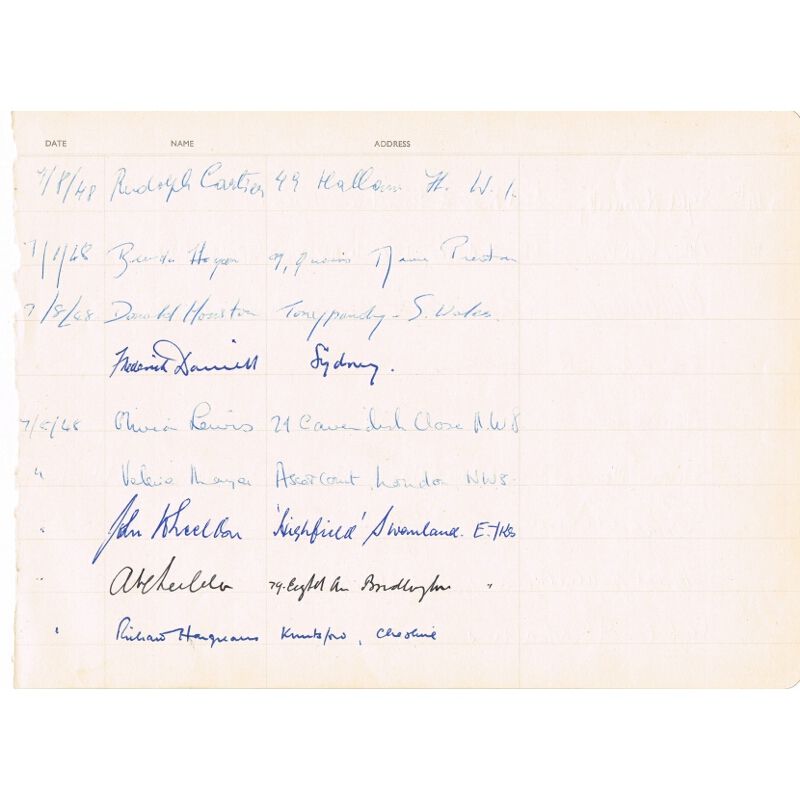 DATE NAME ADDRESS
7/8/48 Rudolph Cartier 49 Hallam St. W. 1.
7/8/48 Brenda Hogan 9, Preston
7/8/48 Donald Houston Tonypandy - S. Wales.
Frederick Daniell Sydney.
7/8/48 Olivia Lewis 21 Cavendish Close N.W 8
" Valerie Ascot Court, London NW8.
" John Wheeldon 'Highfield' Swanland. E. Yks
" Bridlington "
" Richard Hargreaves Knutsford, Cheshire